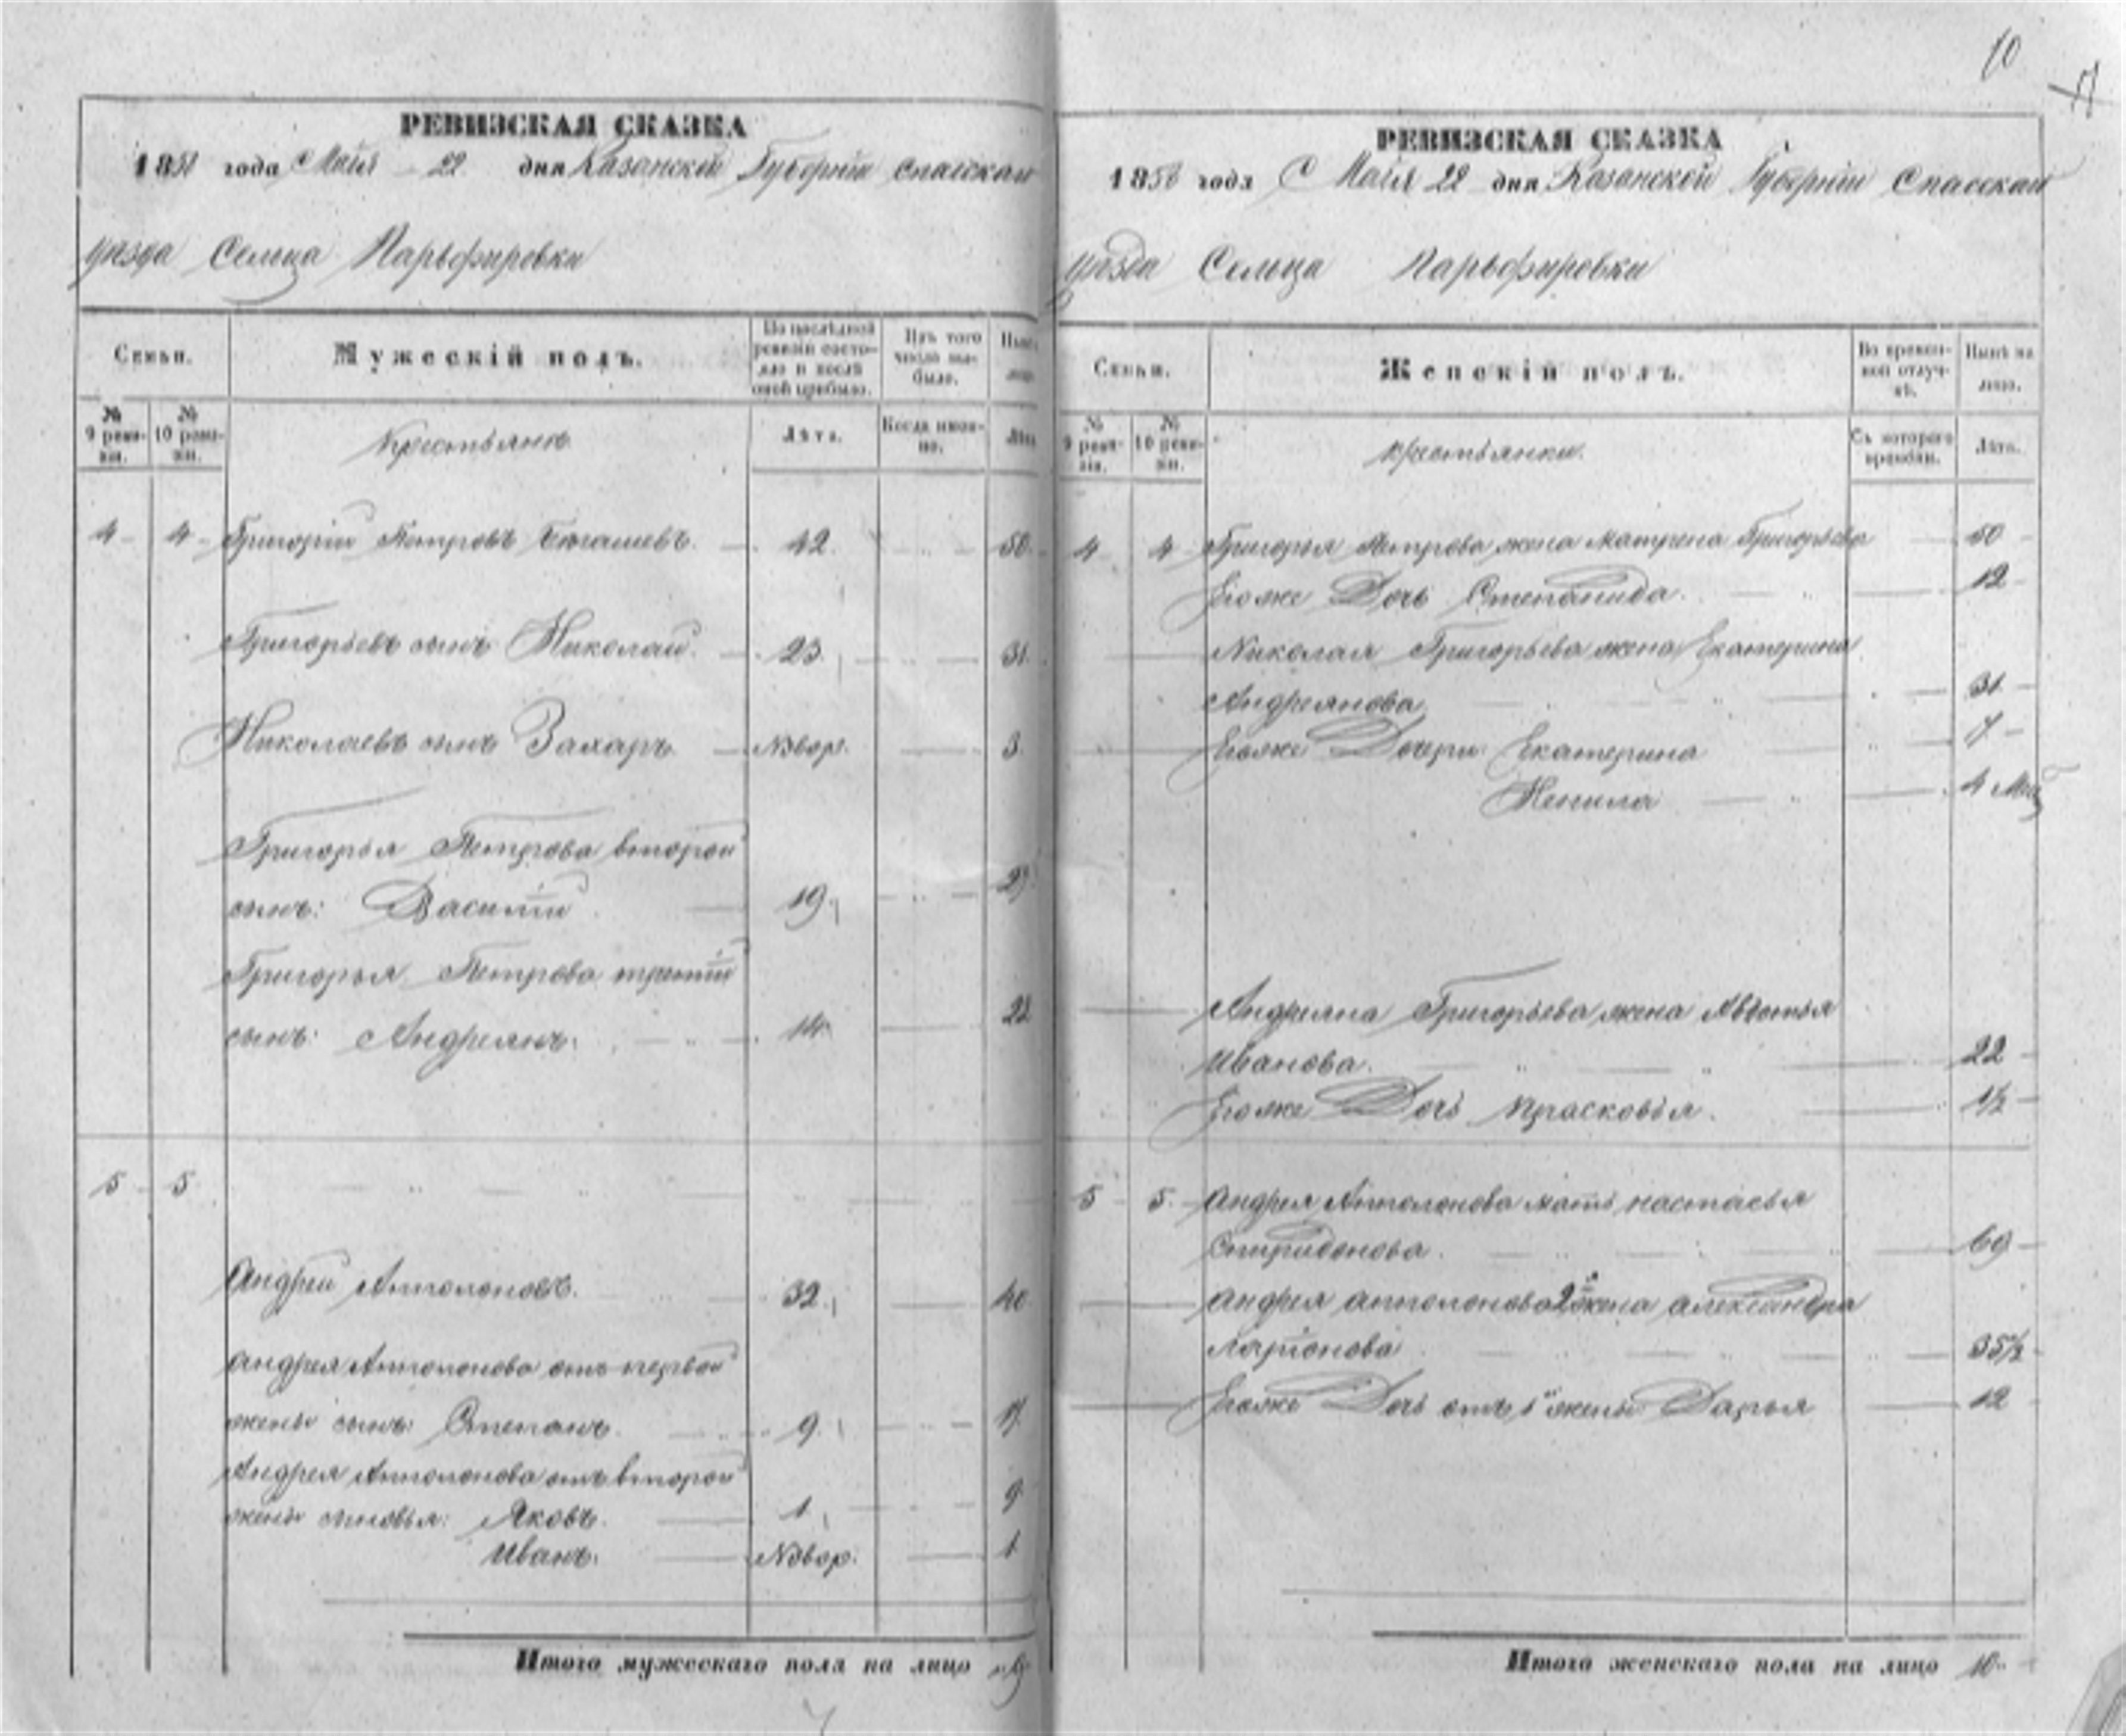 10
РЕВИЗСКАЯ СКАЗКА
1858 года Майя 22 дня Казанской Губерніи Спасскаго
уезда Сельца Парьфировки
Семьи.
Мужескій полъ.
По послѣдней ревизіи состояло и послѣ оной прибыло.
Изъ того числа выбыло.
Нынѣ
лицо.
№ 9 ревизіи.
№ 10 ревизіи.
Крестьянъ
Лѣта.
Когда именно.
Лѣта
4 4 Григорій Петровъ 42 50
Григорьевъ сынъ Николай 23 31
Николаевъ сынъ Захаръ Новор. 3
Григорья Петрова второй
сынъ: Василій 19 27
Григорья Петрова третій
сынъ: Андреянъ 14 22
5 5
Андрей Апполоновъ 32 40
Андрея Апполонова отъ первой
жены сынъ: Степанъ 9 17
Андрея Апполонова отъ второй
жены сыновья: Яковъ 1 9
Иванъ Новор. 1
Итого мужескаго пола на лицо
РЕВИЗСКАЯ СКАЗКА
1858 года Майя 22 дня Казанской Губерніи Спасскаго
уезда Сельца Парьфировки
Семьи.
Женскій полъ.
Во временной отлучкѣ.
Нынѣ на лицо.
№ 9 ревизіи.
№ 10 ревизіи.
крестьянки.
Съ котораго времени.
Лѣта.
4 4 Григорья Петрова жена Матрена Григорьева 50
Егоже Дочь Степанида 12
Николая Григорьева жена Екатерина
Андреянова 31
Егоже Дочери Екатерина 7
Ненила 4 Мес
Андреяна Григорьева жена Авдотья
Иванова 22
Егоже Дочь Прасковья 1/2
5 5 Андрея Апполонова мать настасья
Спиридонова 69
Андрея апполонова 2я жена александра
Ларионова 35 1/2
Егоже Дочь отъ 1й жены Дарья 12
Итого женскаго пола на лицо 10